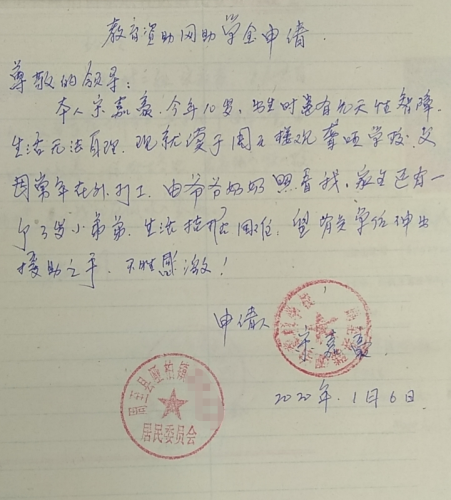 教育资助网助学金申请
尊敬的领导:
本人宋嘉豪,今年10岁,出生时患有先天性智障,
生活无法自理,现就读于周至楼观聋哑学校,父
母常年在外打工,由爷爷奶奶照看我,家里还有一
个3岁小弟弟,生活拮据困难,望有关单位伸出
援助之手,不胜感激!
申请人
宋嘉豪
2020年.1月6日
周至县
镇
居民委员会